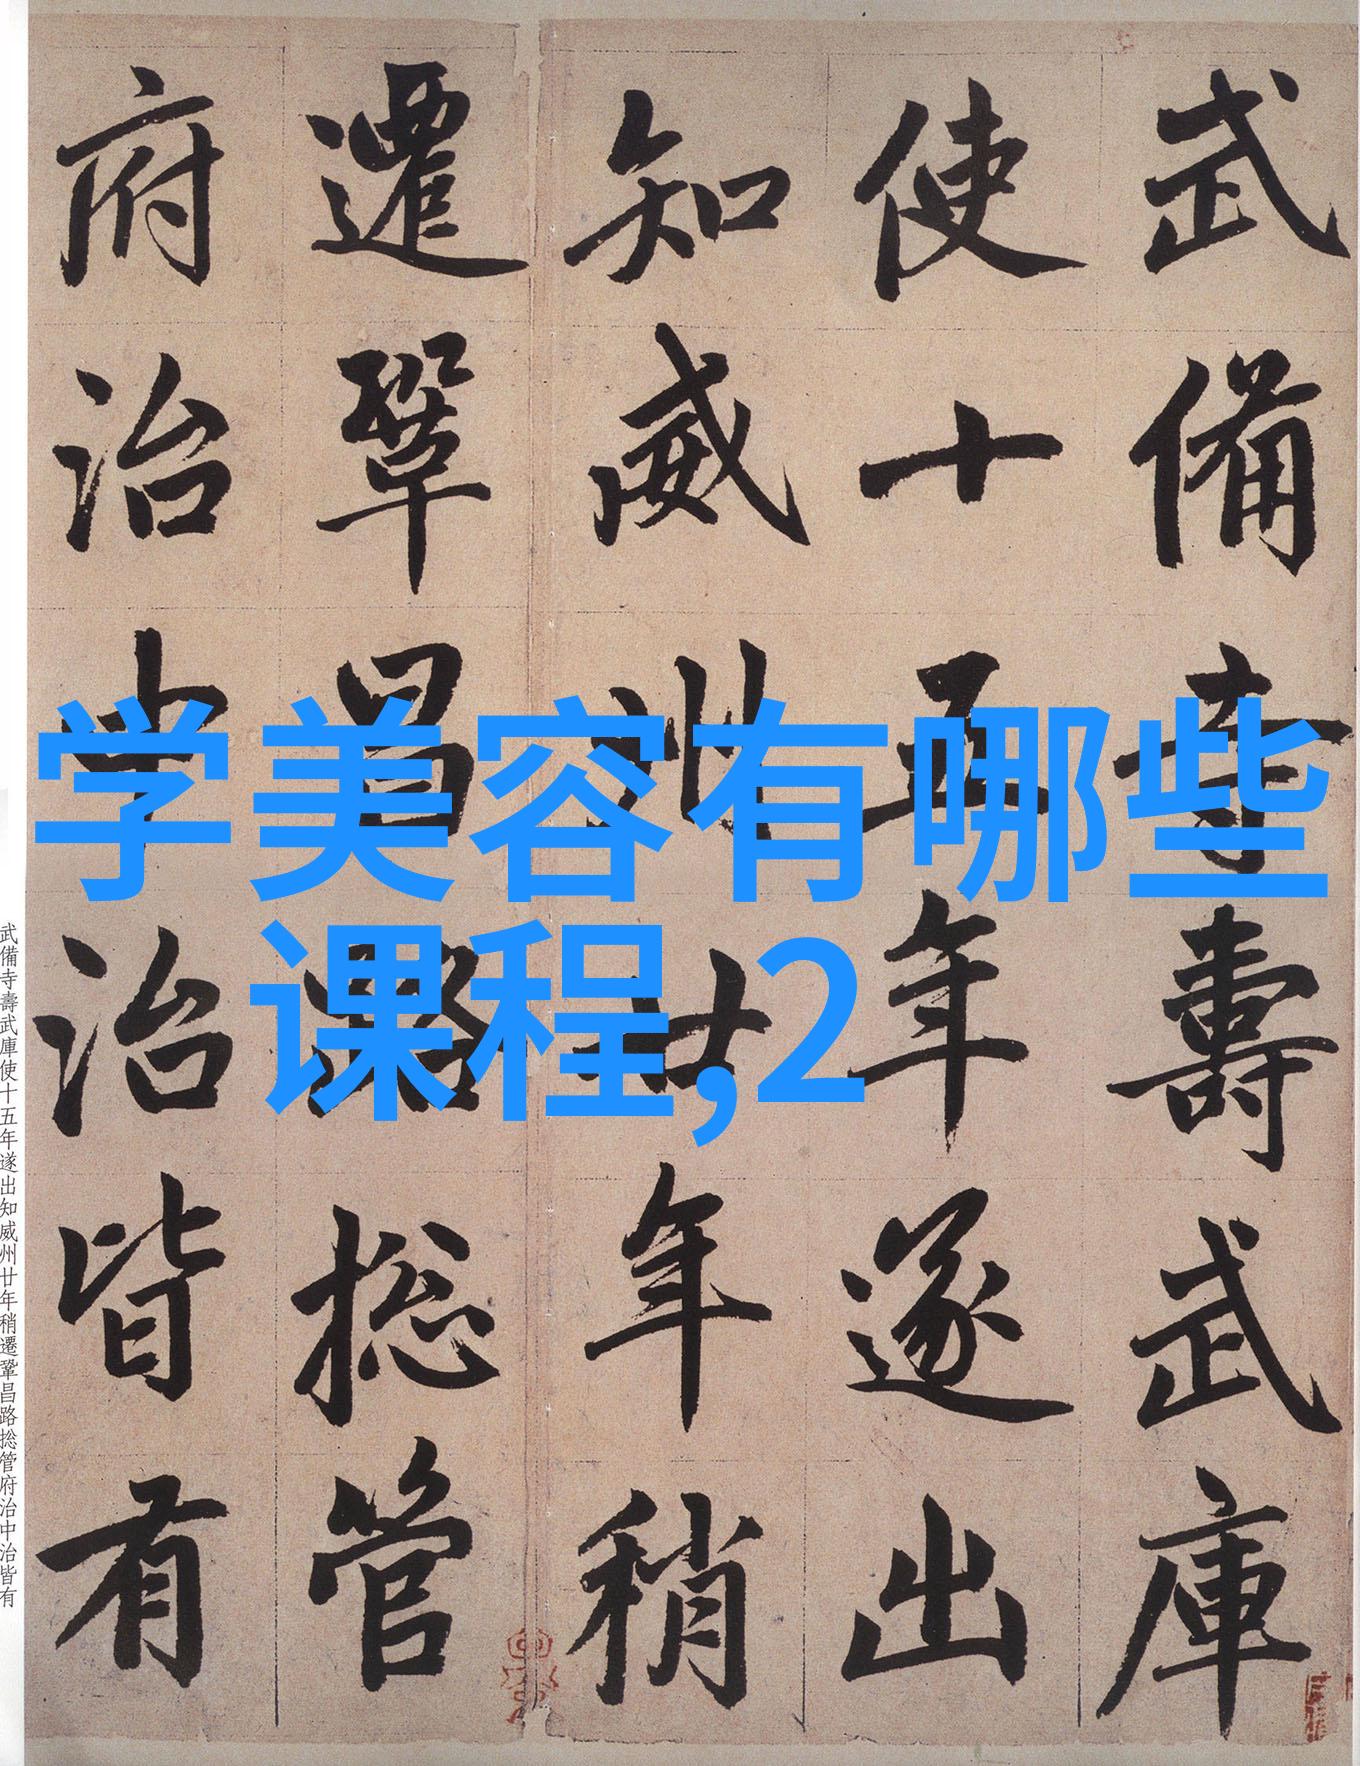 武備寺壽武庫
使十五年遂出
知威州廿年稍
遷鞏昌路捴管
府治中治皆有
学美容有哪些
课程,2
武備寺壽武庫使十五年遂出知威州廿年稍遷鞏昌路捴管府治中治皆有